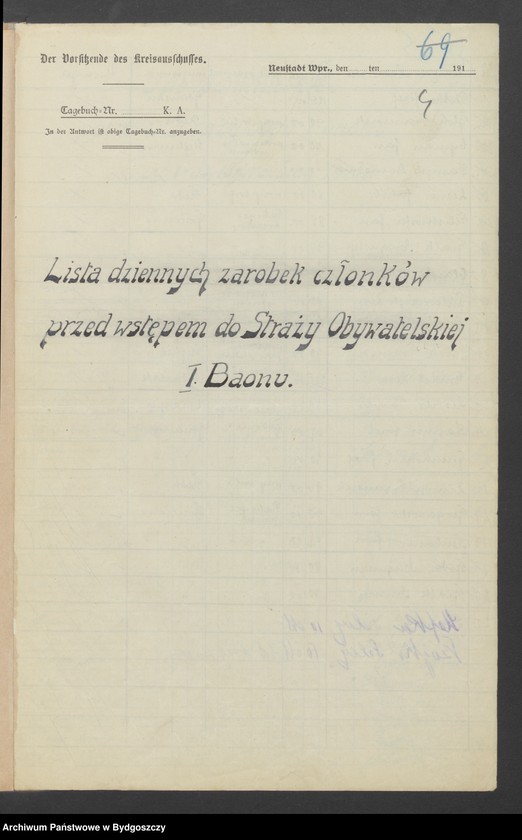 Der Vorsitzende des Kreisausschusses.
69
Neustadt Wpr., den ten 191
Tagebuch-Nr. K. A.
In der Antwort ist obige Tagebuch-Nr. anzugeben.
Lista dziennych zarobek członków
przed wstępem do Straży Obywatelskiej
I. Baonu.
Archiwum Państwowe w Bydgoszczy